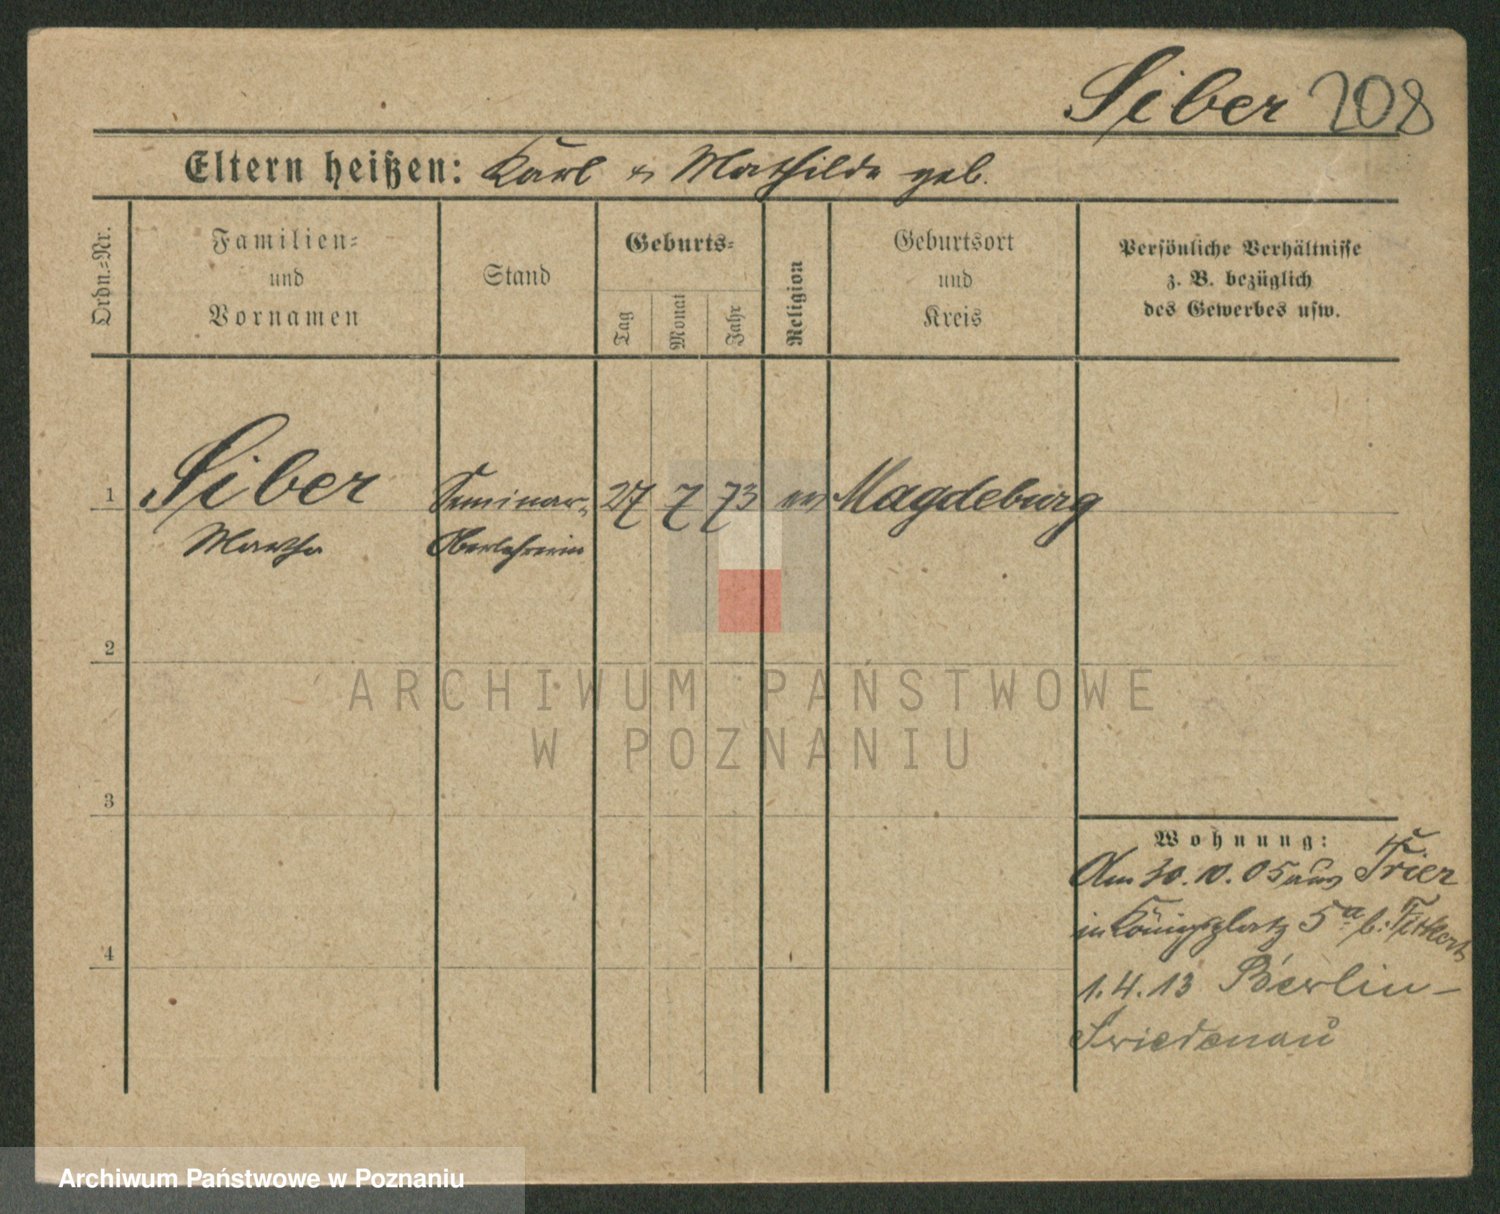 Siber 208
Eltern heißen: Karl u Mathilde geb.
Ordn.-Nr.
Familien-
und
Vornamen
Stand
Geburts-
Tag
Monat
Jahr
Religion
Geburtsort
und
Kreis
Persönliche Verhältnisse
z. B. bezüglich
des Gewerbes usw.
1 Siber Seminar- 27 7 73 ev Magdeburg
Martha Oberlehrerin
2
3
4
Wohnung:
Am 30.10.05 aus Trier
in Königsplatz 5a b:
1.4.13 Berlin-
Friedenau
ARCHIWUM PAŃSTWOWE
W POZNANIU
Archiwum Państwowe w Poznaniu